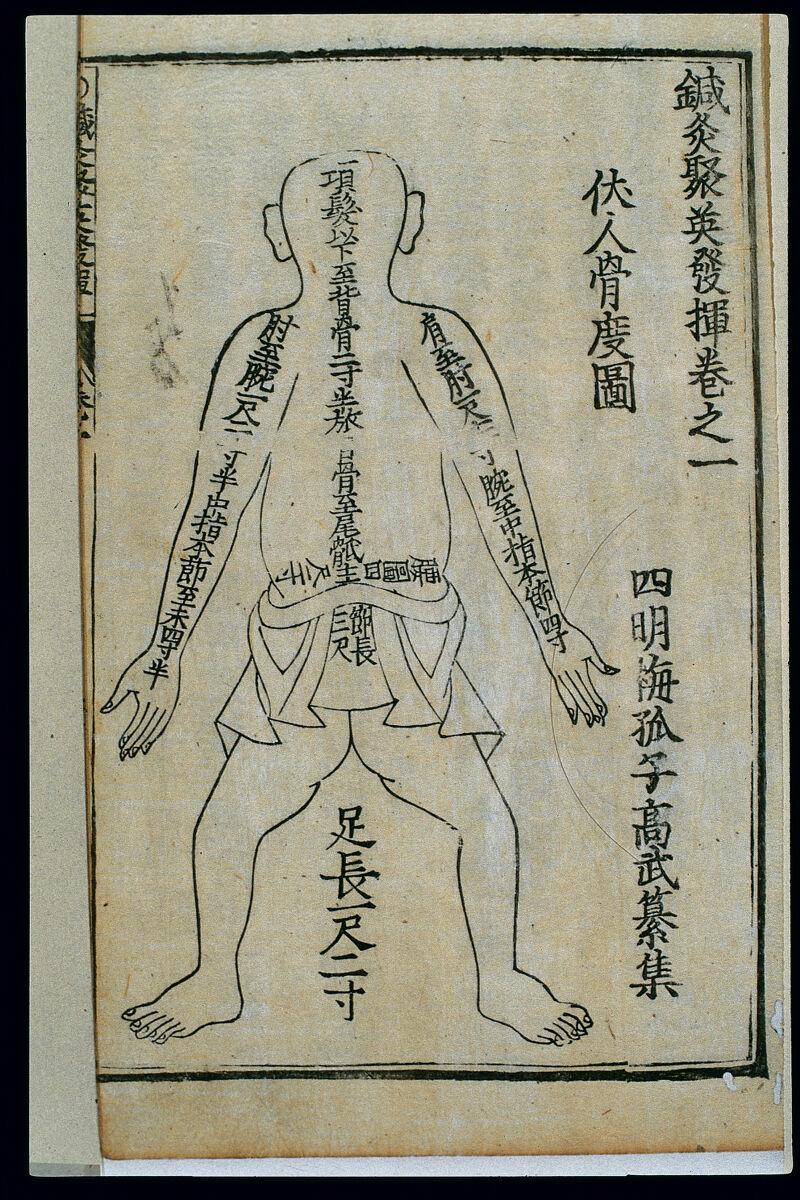 鍼灸聚英發揮卷之一
伏人骨度圖
四明梅孤子高武纂集
肩至肘一尺
寸
腕至中指本節四寸
項髮以下至背骨二寸半
骨至尾骶
節長
三尺
腰圍四
尺二寸
肘至腕一尺二寸半
中指本節至末四寸半
足長一尺二寸